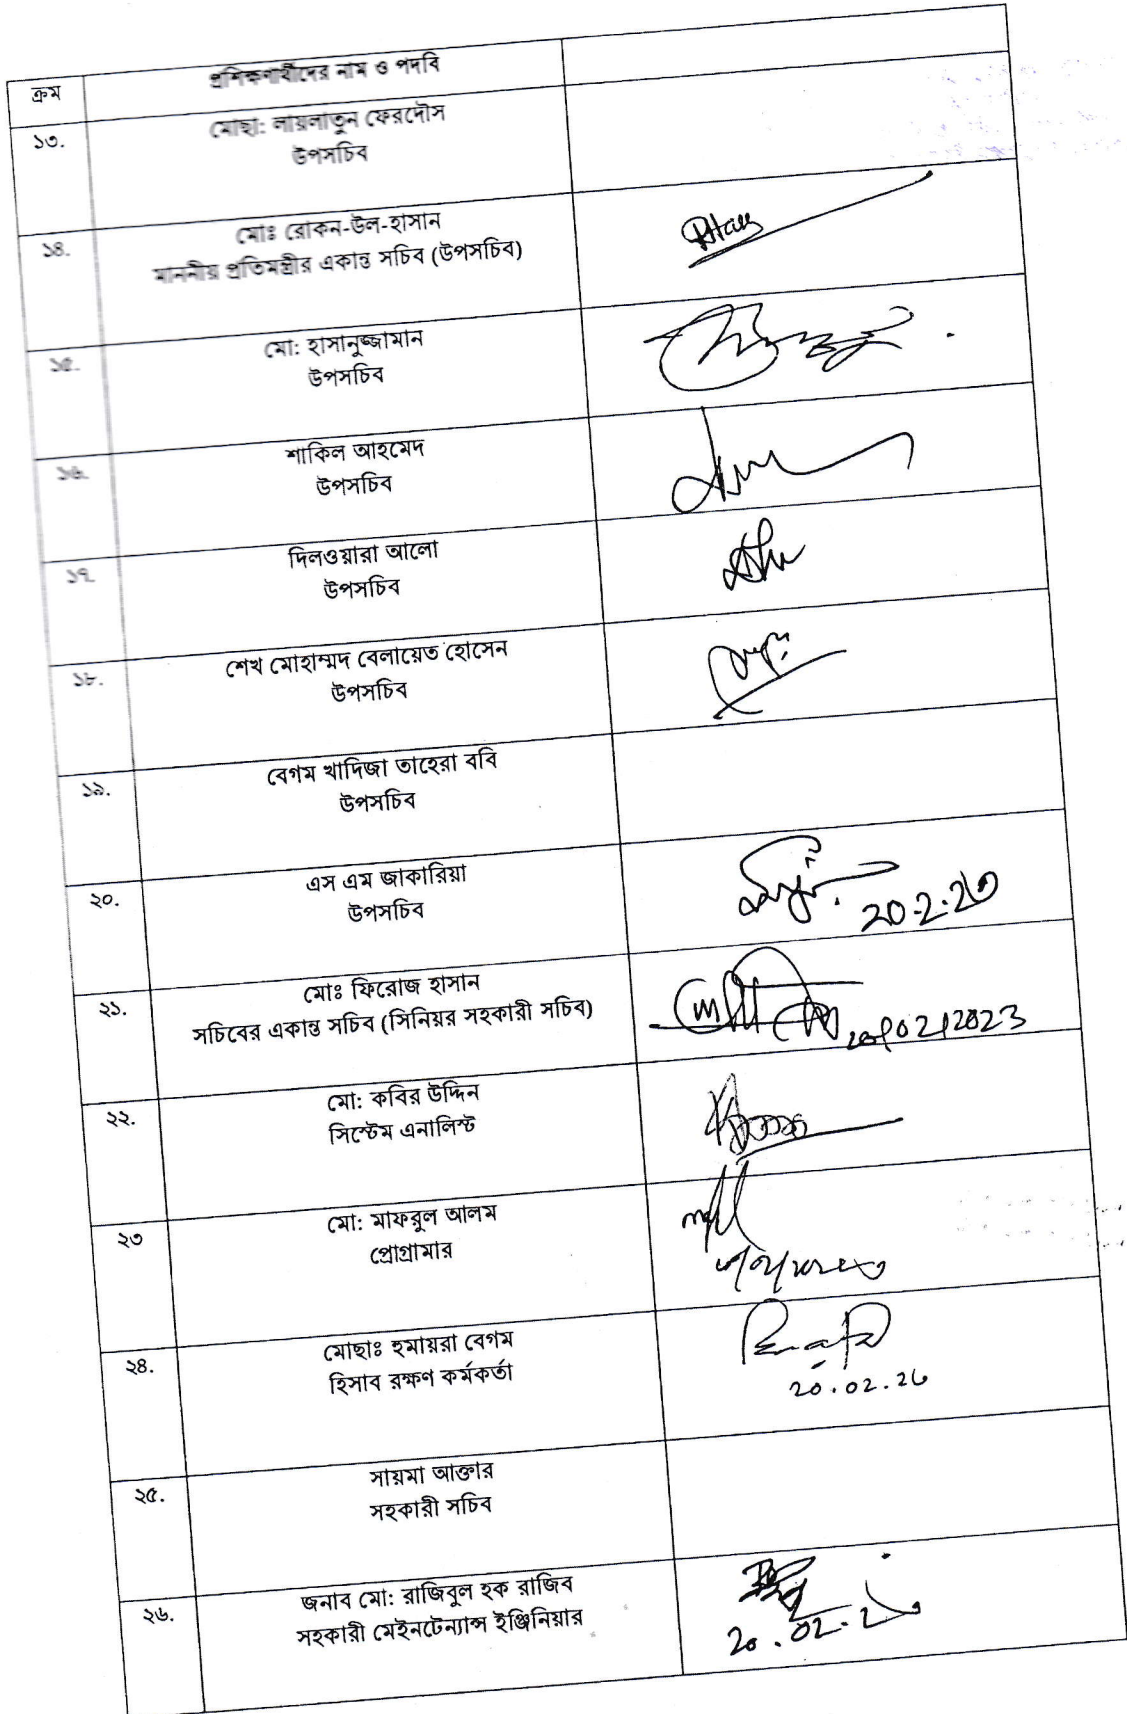 ক্রম
প্রশিক্ষণার্থীদের নাম ও পদবি
১৩.
মোছা: লায়লাতুন ফেরদৌস
উপসচিব
১৪.
মোঃ রোকন-উল-হাসান
মাননীয় প্রতিমন্ত্রীর একান্ত সচিব (উপসচিব)
১৫.
মো: হাসানুজ্জামান
উপসচিব
১৬.
শাকিল আহমেদ
উপসচিব
১৭.
দিলওয়ারা আলো
উপসচিব
১৮.
শেখ মোহাম্মদ বেলায়েত হোসেন
উপসচিব
১৯.
বেগম খাদিজা তাহেরা ববি
উপসচিব
২০.
এস এম জাকারিয়া
উপসচিব
২০.২.২৩
২১.
মোঃ ফিরোজ হাসান
সচিবের একান্ত সচিব (সিনিয়র সহকারী সচিব)
20/02/2023
২২.
মো: কবির উদ্দিন
সিস্টেম এনালিস্ট
২৩
মো: মাফরুল আলম
প্রোগ্রামার
২৪.
মোছাঃ হুমায়রা বেগম
হিসাব রক্ষণ কর্মকর্তা
২০.০২.২৩
২৫.
সায়মা আক্তার
সহকারী সচিব
২৬.
জনাব মো: রাজিবুল হক রাজিব
সহকারী মেইনটেন্যান্স ইঞ্জিনিয়ার
২০.০২.২৩